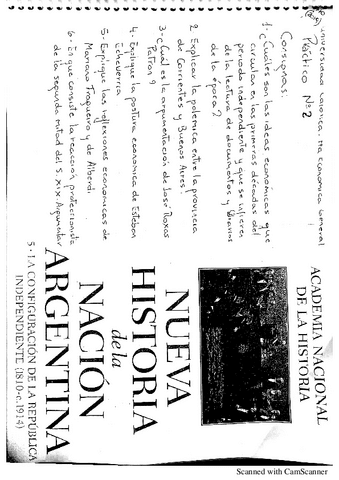 Universidad Historia Economica General
Práctico Nº2
Consignas:
1- ¿Cuáles son las ideas económicas que
circulan en las primeras décadas del
período independiente y que se infieren
de la lectura de documentos y Diarios
de la época?
2. Explicar la polemica entre la provincia
de Corrientes y Buenos Aires.
3- ¿Cuál es la argumentación de José Rojas
Patrón?
4. Explique la postura economica de Esteban
Echeverría
5. Explique las reflexiones economicas de
Mariano Fragueiro y de Alberdi.
6. En que consiste la reacción proteccionista
de la segunda mitad del S. XIX. Argumentar
ACADEMIA NACIONAL
DE LA HISTORIA
NUEVA
HISTORIA
de la
NACIÓN
ARGENTINA
5 · LA CONFIGURACIÓN DE LA REPÚBLICA
INDEPENDIENTE (1810-c.1914)
Scanned with CamScanner